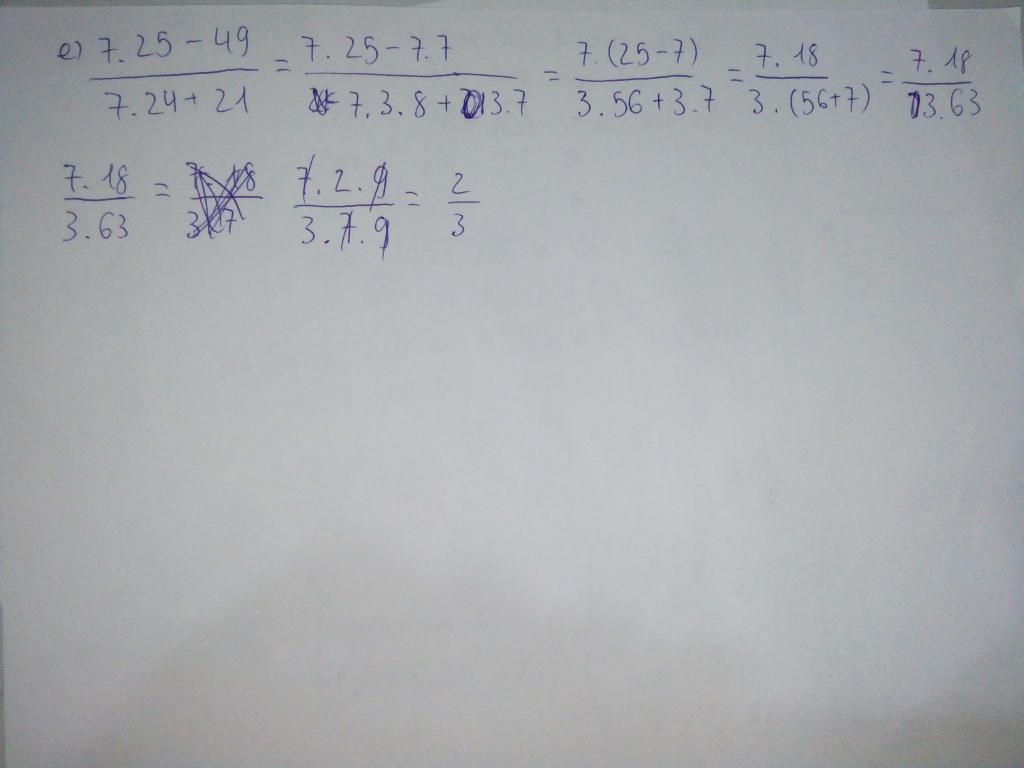 e) (7.25 - 49)/(7.24 + 21) = (7.25 - 7.7)/(7.3.8 + 3.7) = (7.(25-7))/(3.56 + 3.7) = (7.18)/(3.(56+7)) = (7.18)/(3.63)
(7.18)/(3.63) = (7.2.9)/(3.7.9) = 2/3